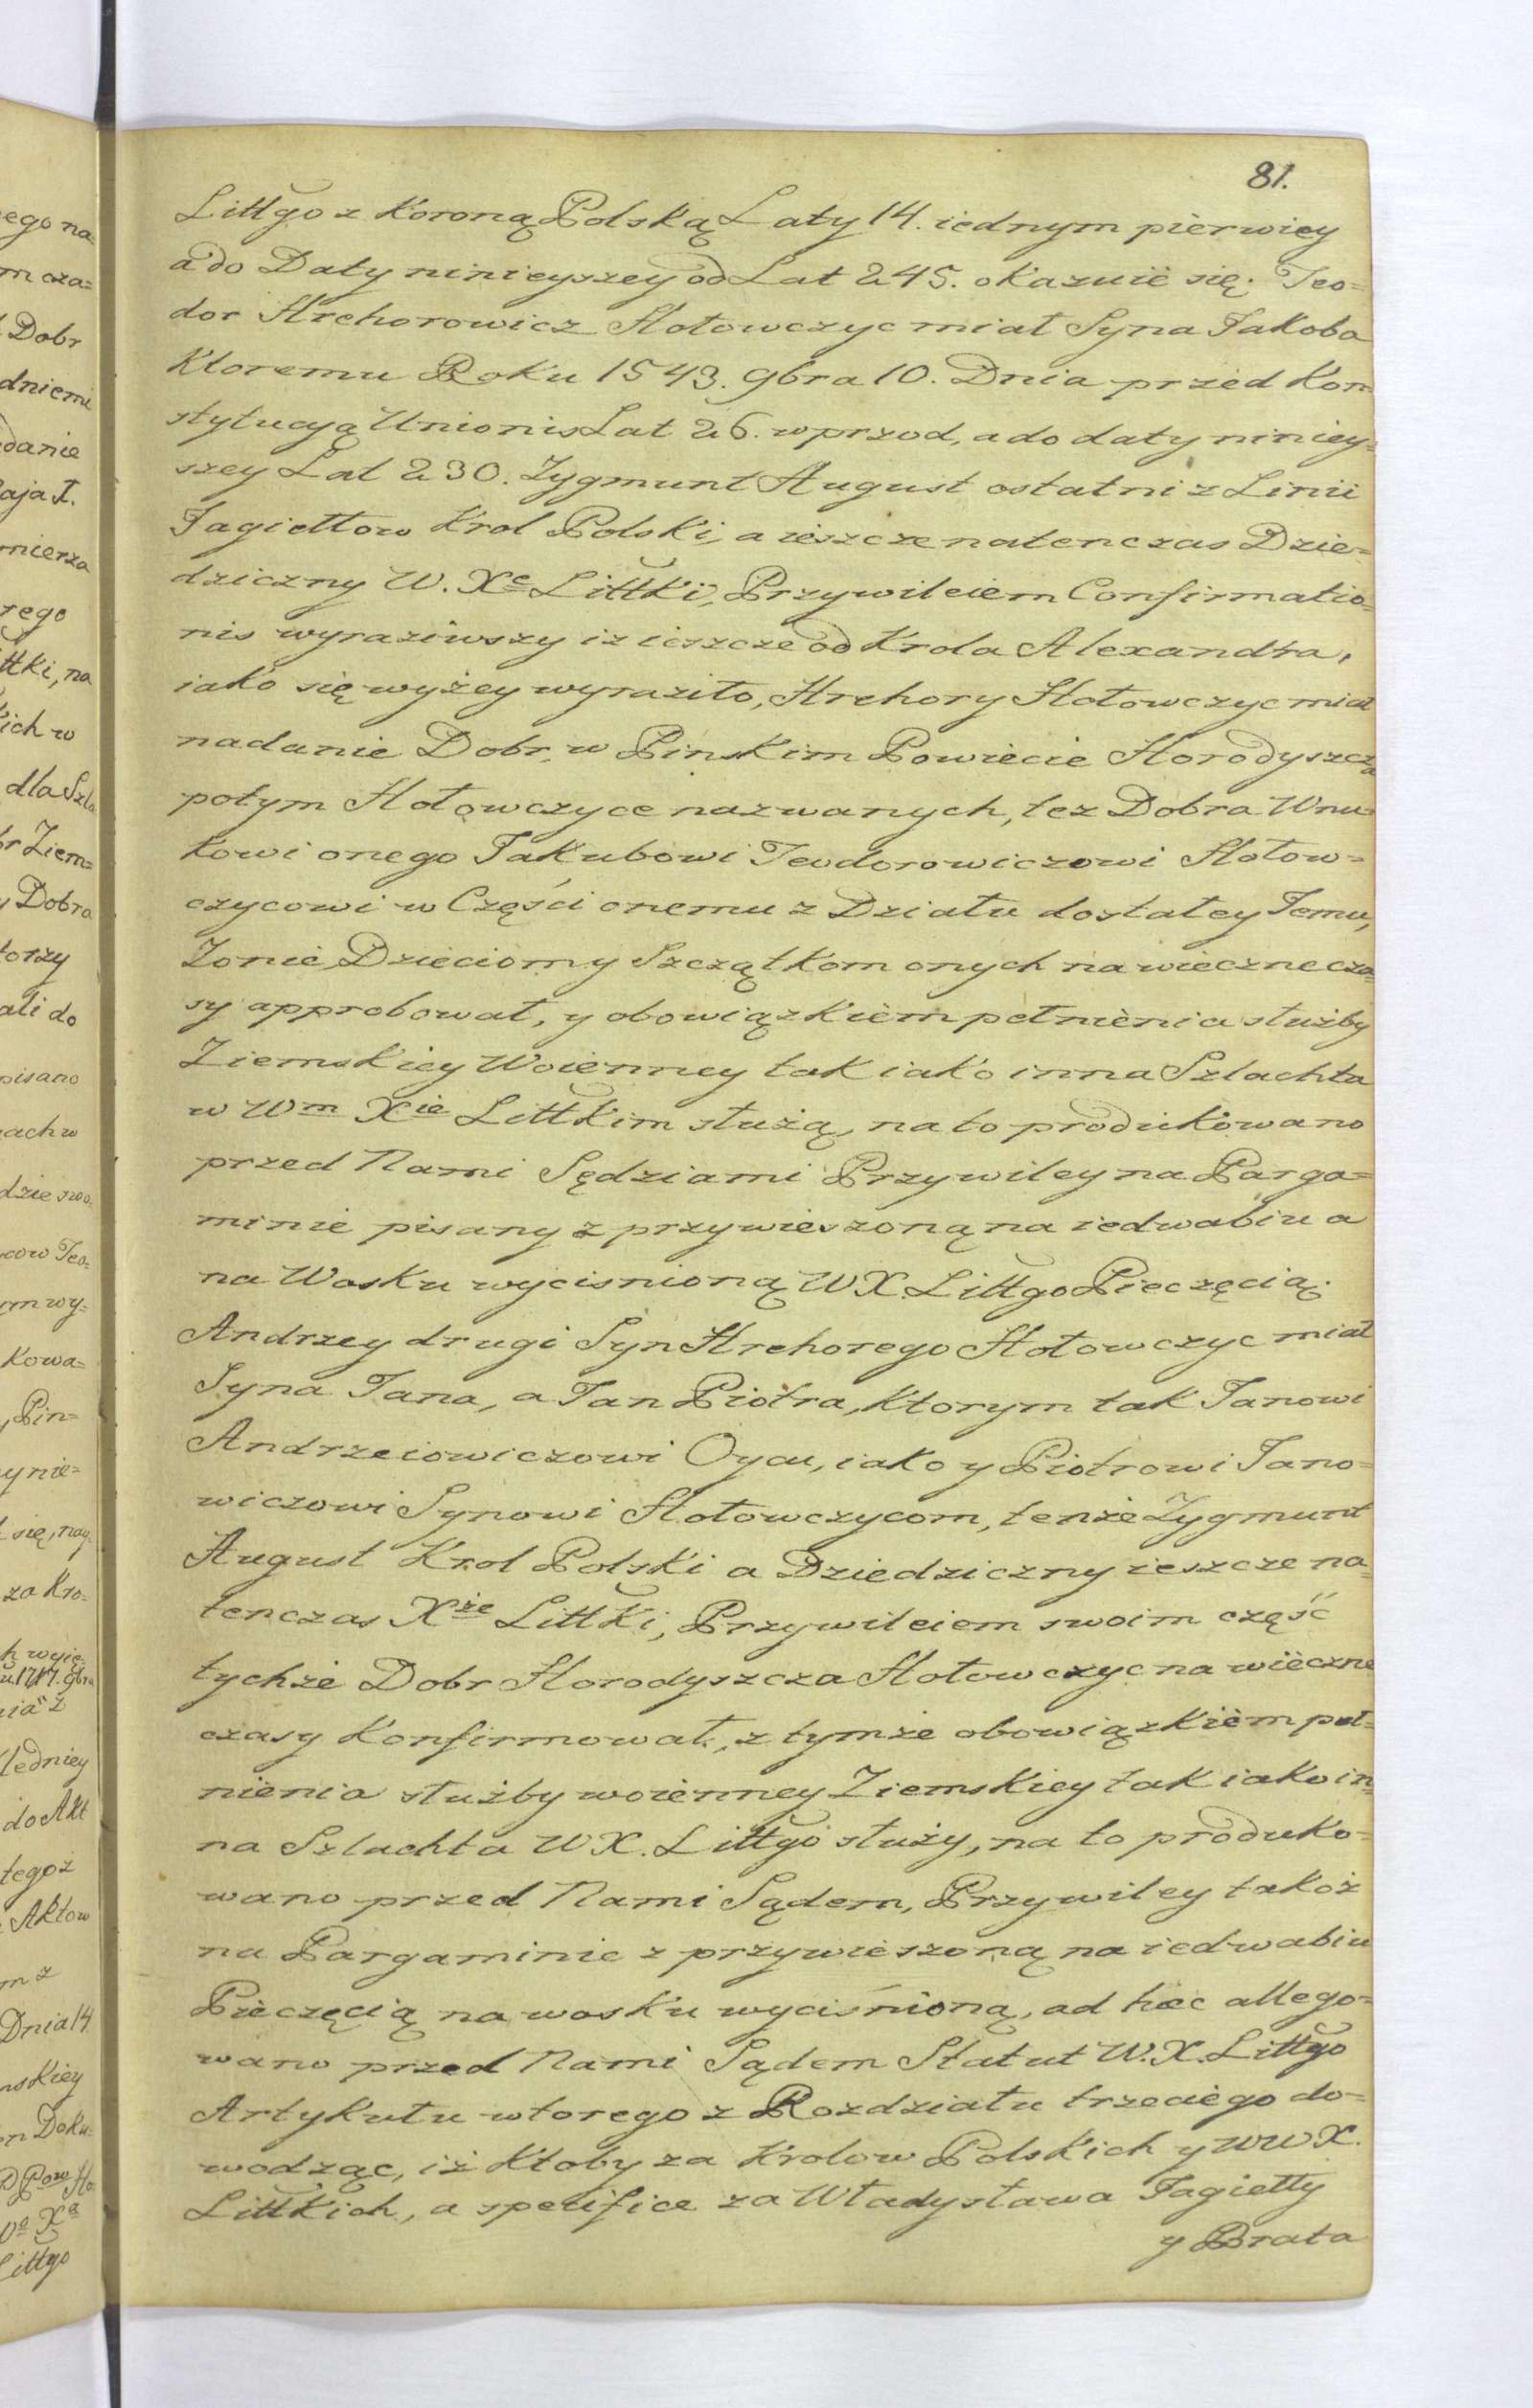 81.
Littgo z Koroną Polską Laty 14. iednym pierwiey
a do Daty ninieyszey od Lat 245. okazuie się. Teo=
dor Hrehorowicz Hołowczyc miał Syna Jakoba
Ktoremu Roku 1543. 9bra 10. Dnia przed Kon
stytucyą Unionis Lat 26. wprzod, a do daty niniey=
szey Lat 230. Zygmunt August ostatni z Linii
Jagiełłow Krol Polski, a ieszcze natenczas Dzie=
dziczny W. Xe Littki, Przywileiem Confirmatio=
nis wyraziwszy iz ieszcze od Krola Alexandra,
iako się wyżey wyraziło, Hrehory Hołowczyc miał
nadanie Dobr, w Pinskim Powiecie Horodyszcza
potym Hołowczyce nazwanych, tez Dobra Wnu=
kowi onego Jakubowi Teodorowiczowi Hołow=
czycowi w Części onemu z Działu dostałey Jemu,
Zonie, Dzieciom y Szczątkom onych na wieczne cza=
sy approbował, y obowiązkiem pełnienia służby
Ziemskiey Woienney tak iako inna Szlachta
w Wm Xie Littkim służą, na to produkowano
przed Nami Sędziami Przywiley na Parga=
minie pisany z przywieszoną na iedwabiu a
na Wosku wycisnioną W X. Littgo Pieczęcią.
Andrzey drugi Syn Hrehorego Hołowczyc miał
Syna Jana, a Jan Piotra, Ktorym tak Janowi
Andrzeiowiczowi Oycu, iako y Piotrowi Jano=
wiczowi Synowi Hołowczycom, tenże Zygmunt
August Krol Polski a Dziedziczny ieszcze na=
tenczas Xże Littki, Przywileiem swoim część
tychże Dobr Horodyszcza Hołowczyc na wieczne
czasy Konfirmował, z tymże obowiązkiem peł=
nienia służby woienney Ziemskiey tak iako in=
na Szlachta W X. Littgo służy, na to produko=
wano przed Nami Sądem, Przywiley takoż
na Pargaminie z przywieszoną na iedwabiu
Pieczęcią na wosku wyciśnioną, ad hæc allego=
wano przed Nami Sądem Statut W. X. Littgo
Artykułu wtorego z Rozdziału trzeciego do=
wodząc, iż Ktoby za Krolow Polskich y WW X.
Littkich, a specifice za Władysława Jagiełły
y Brata